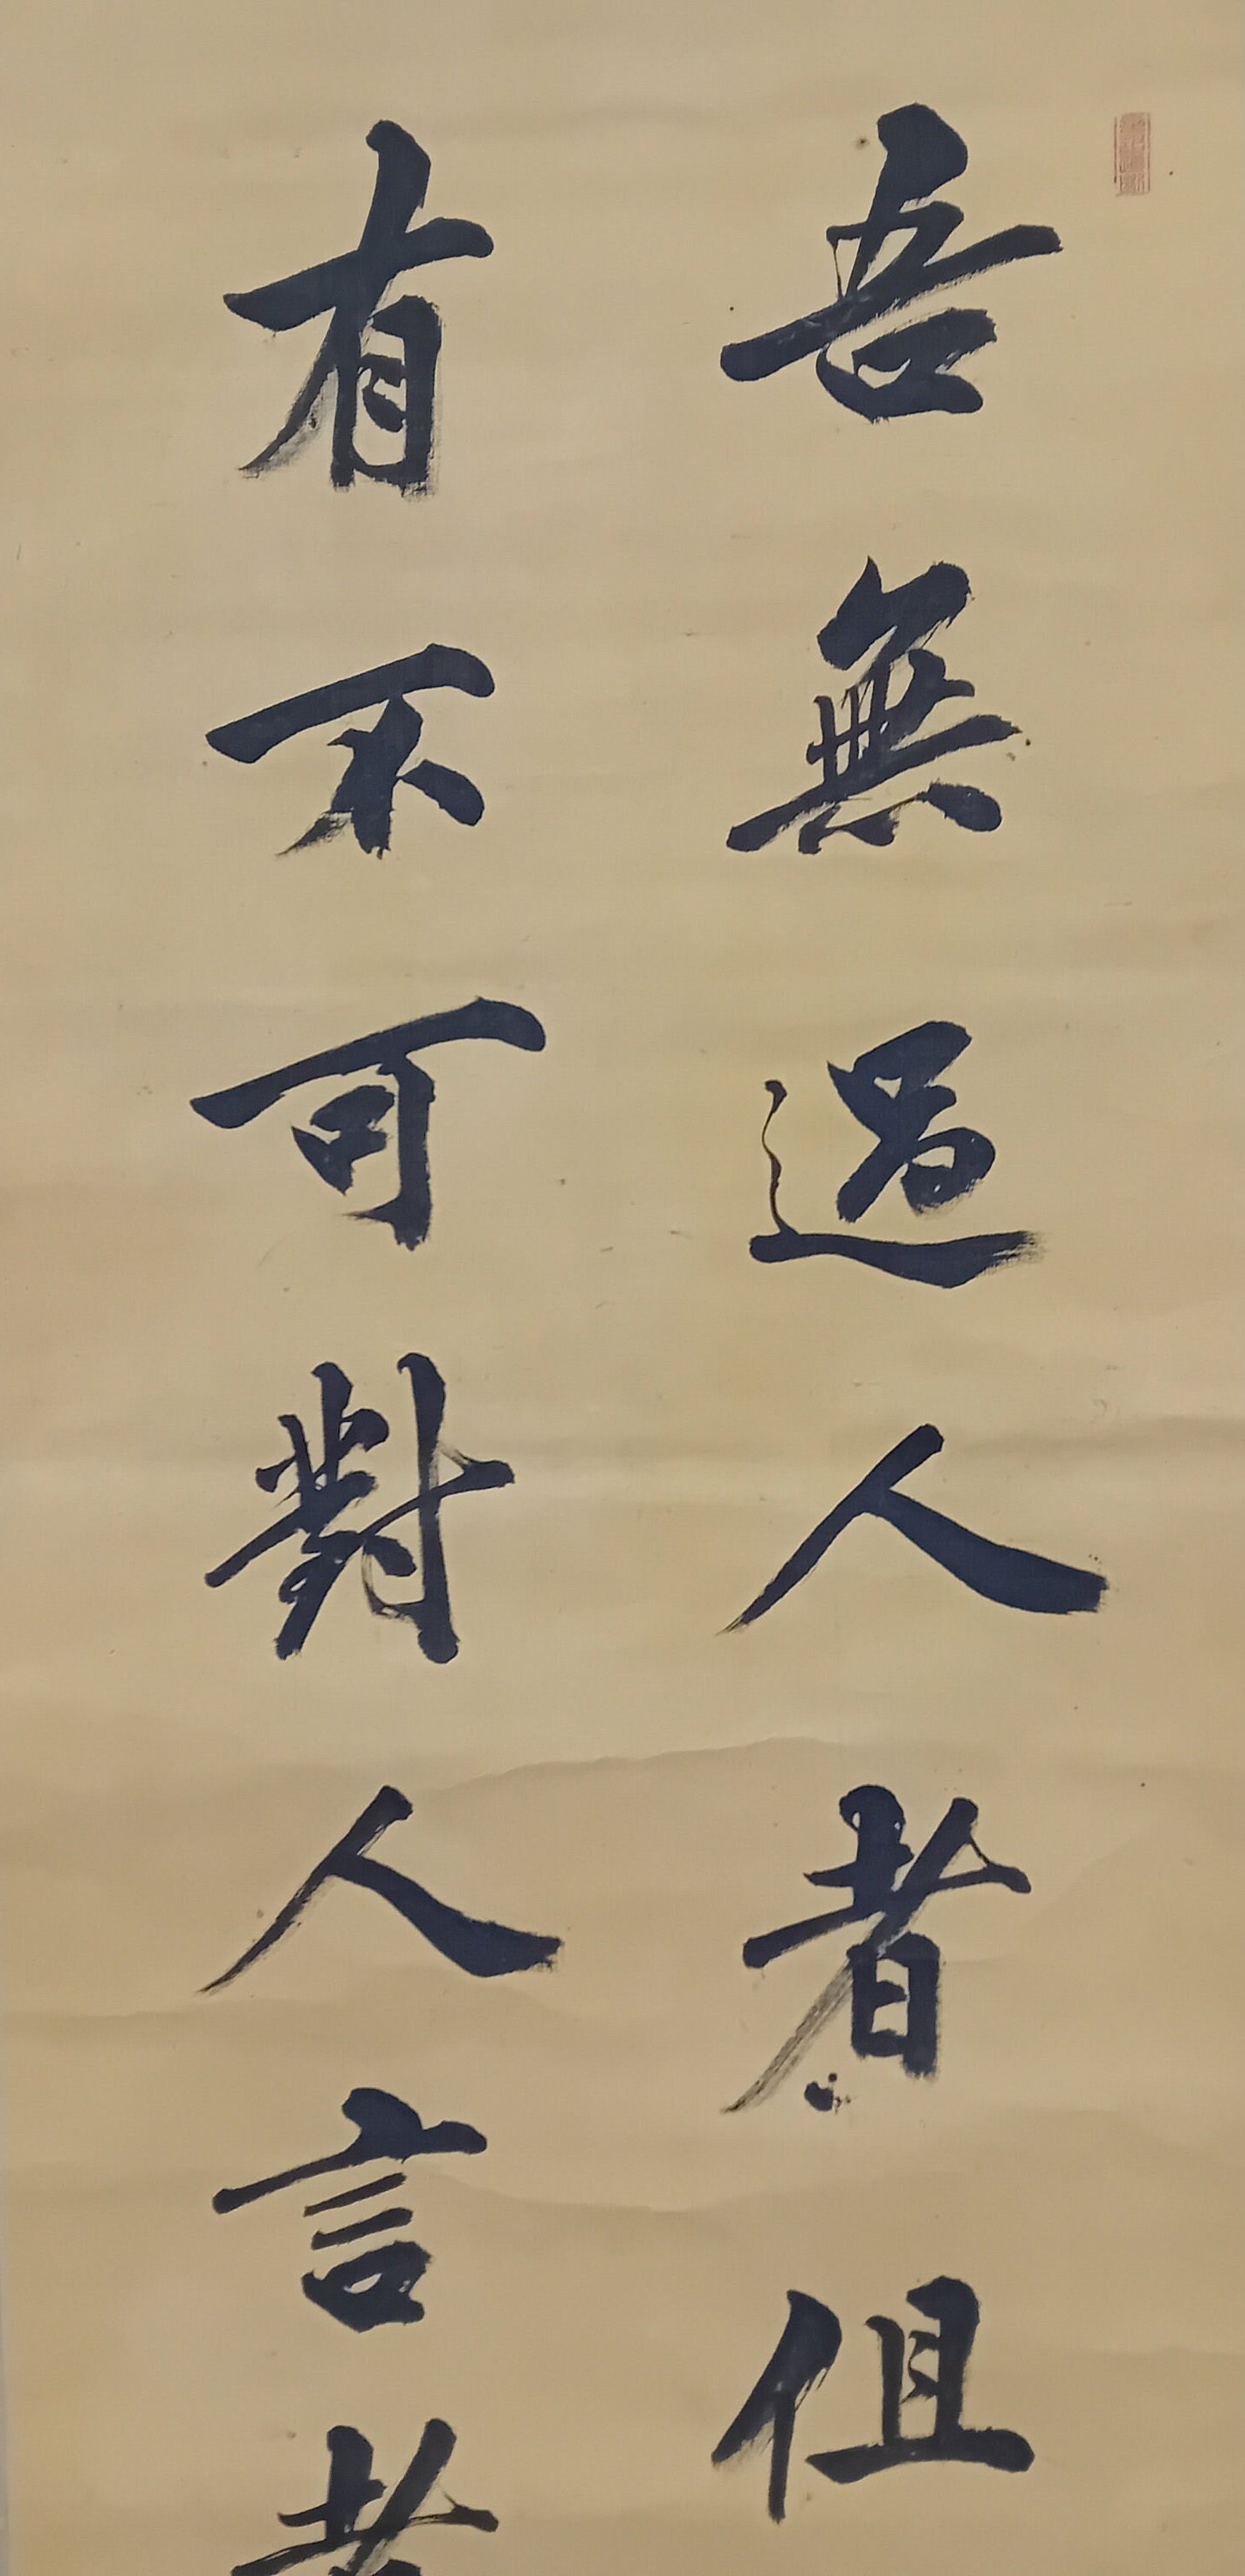 吾無過人者但
有不可對人言者